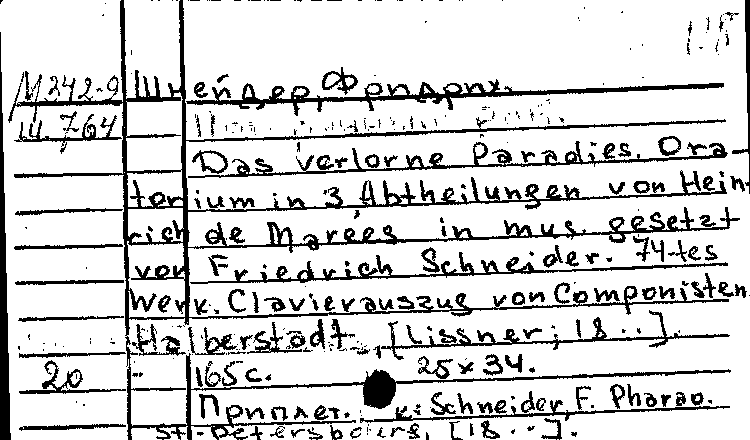 М 242-9 Шнейдер, Фридрих.
Ш. 764
Das verlorne Paradies. Ora-
torium in 3 Abtheilungen von Hein-
rich de Marées in mus. gesetzt
von Friedrich Schneider. 74-tes
Werk. Clavierauszug von Componisten
Halberstadt, [Lissner; 18..].
20 - 165 с. 25 x 34.
Приплет. к: Schneider, F. Pharao.
St.-Petersbourg, [18..].